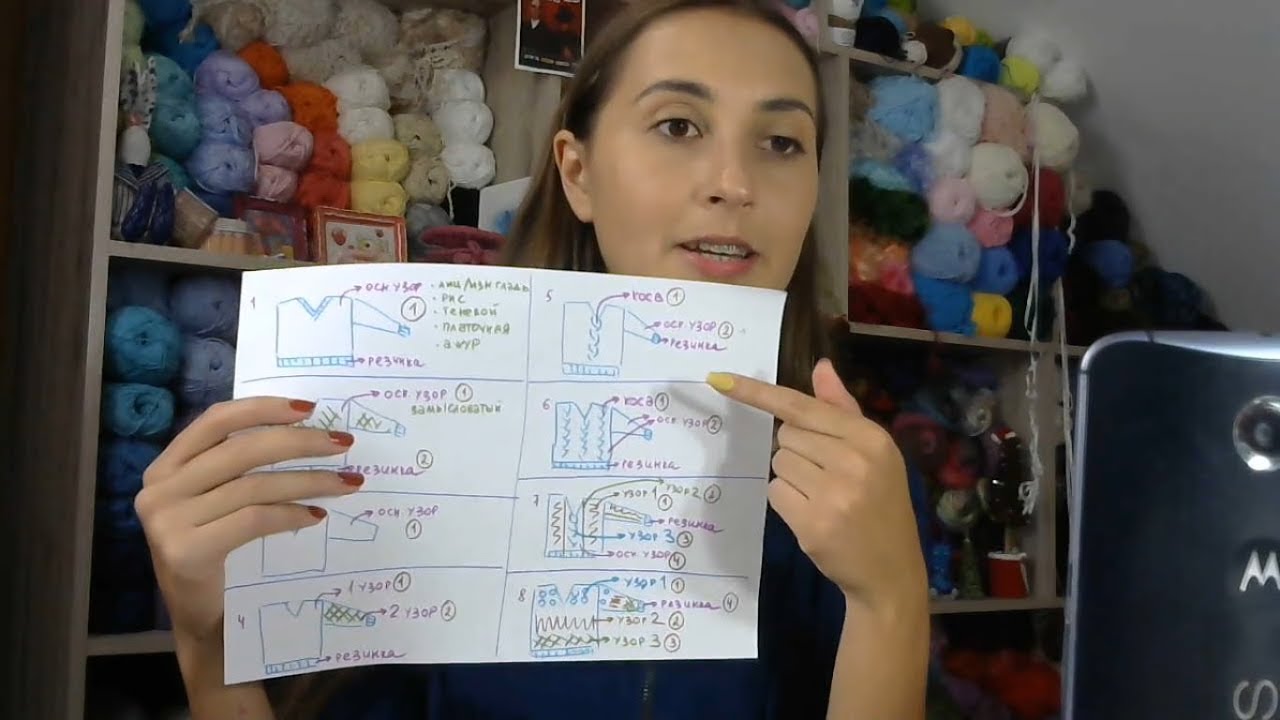 1
осн. узор
1
• лиц/изн гладь
• рис
• теневой
• платочная
• ажур
резинка
осн. узор 1
замысловатый
резинка 2
осн. узор
1
4
1 узор 1
2 узор 2
резинка
5
коса 1
осн. узор 2
резинка
6
коса 1
осн. узор 2
резинка
7
узор 1 узор 2 2
1
резинка
узор 3 3
осн. узор 4
8
узор 1 1
резинка 4
узор 2 2
узор 3 3